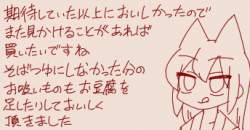 期待していた以上においしかったので
また見かけることがあれば
買いたいですね
そばつゆにしなかった分の
お吸いものもお豆腐を
足したりしておいしく
頂きました